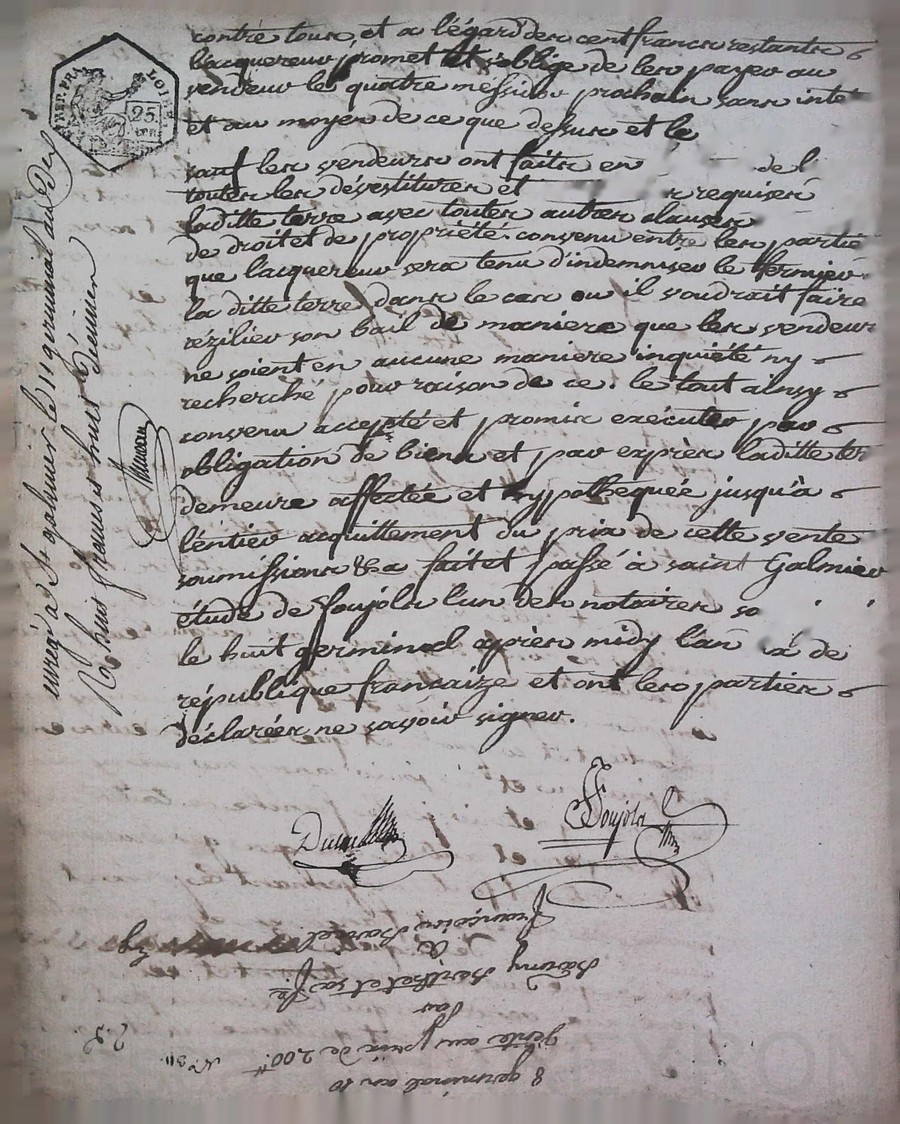 contre tous, et a l'égard des cent francs restants
l'acquereur promet et s'oblige de les payer au
vendeur le quatre méssidor prochain sans inte
et au moyen de ce que dessus et le
sauf les vendeurs ont faits en de l
toutes les dévestitures et requises
laditte terre avec toutes autres clauses
de droit et de propriété. convenu entre les partie
que l'acquereur sera tenu d'indemniser le fermier
la ditte terre dans le cas ou il voudrait faire
rézilier son bail de maniere que les vendeur
ne soient en aucune maniere inquiété ny
recherché pour raison de ce. le tout ainsy
convenu accepté et promis exécuter par
obligation de biens et par exprès laditte ter
demeure affectée et hypothequée jusqu'à
l'entier acquittement du prix de cette vente
soumissions &a fait et passé à saint Galmier
étude de Soujols l'un des notaires so
le huit germinal après midy l'an de
république francaize et ont les parties
déclarées ne savoir signer.
Soujols
enregé à St galmier le 11 germinal an dix
Ro huit francs huit décimes
REP. FRA.
LOIRE
25
8 germinal an 10
vente au prix de 200tt
par
Barthet et sa fe
à
françois